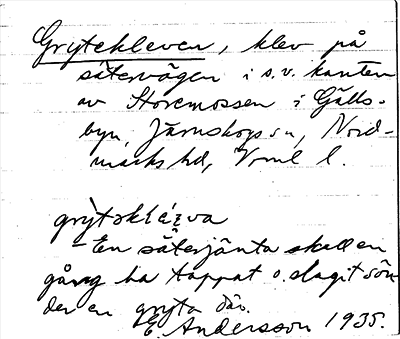 Grytekleven, klev på
sätervägen i s.v. kanten
av Storemossen i Gälls-
byn, Järnskogs sn, Nord-
marks hd, Vrml l.
grỳtəklé̱va
- En säterjänta skall en
gång ha tappat o. slagit sön-
der en gryta där.
E. Andersson 1935.